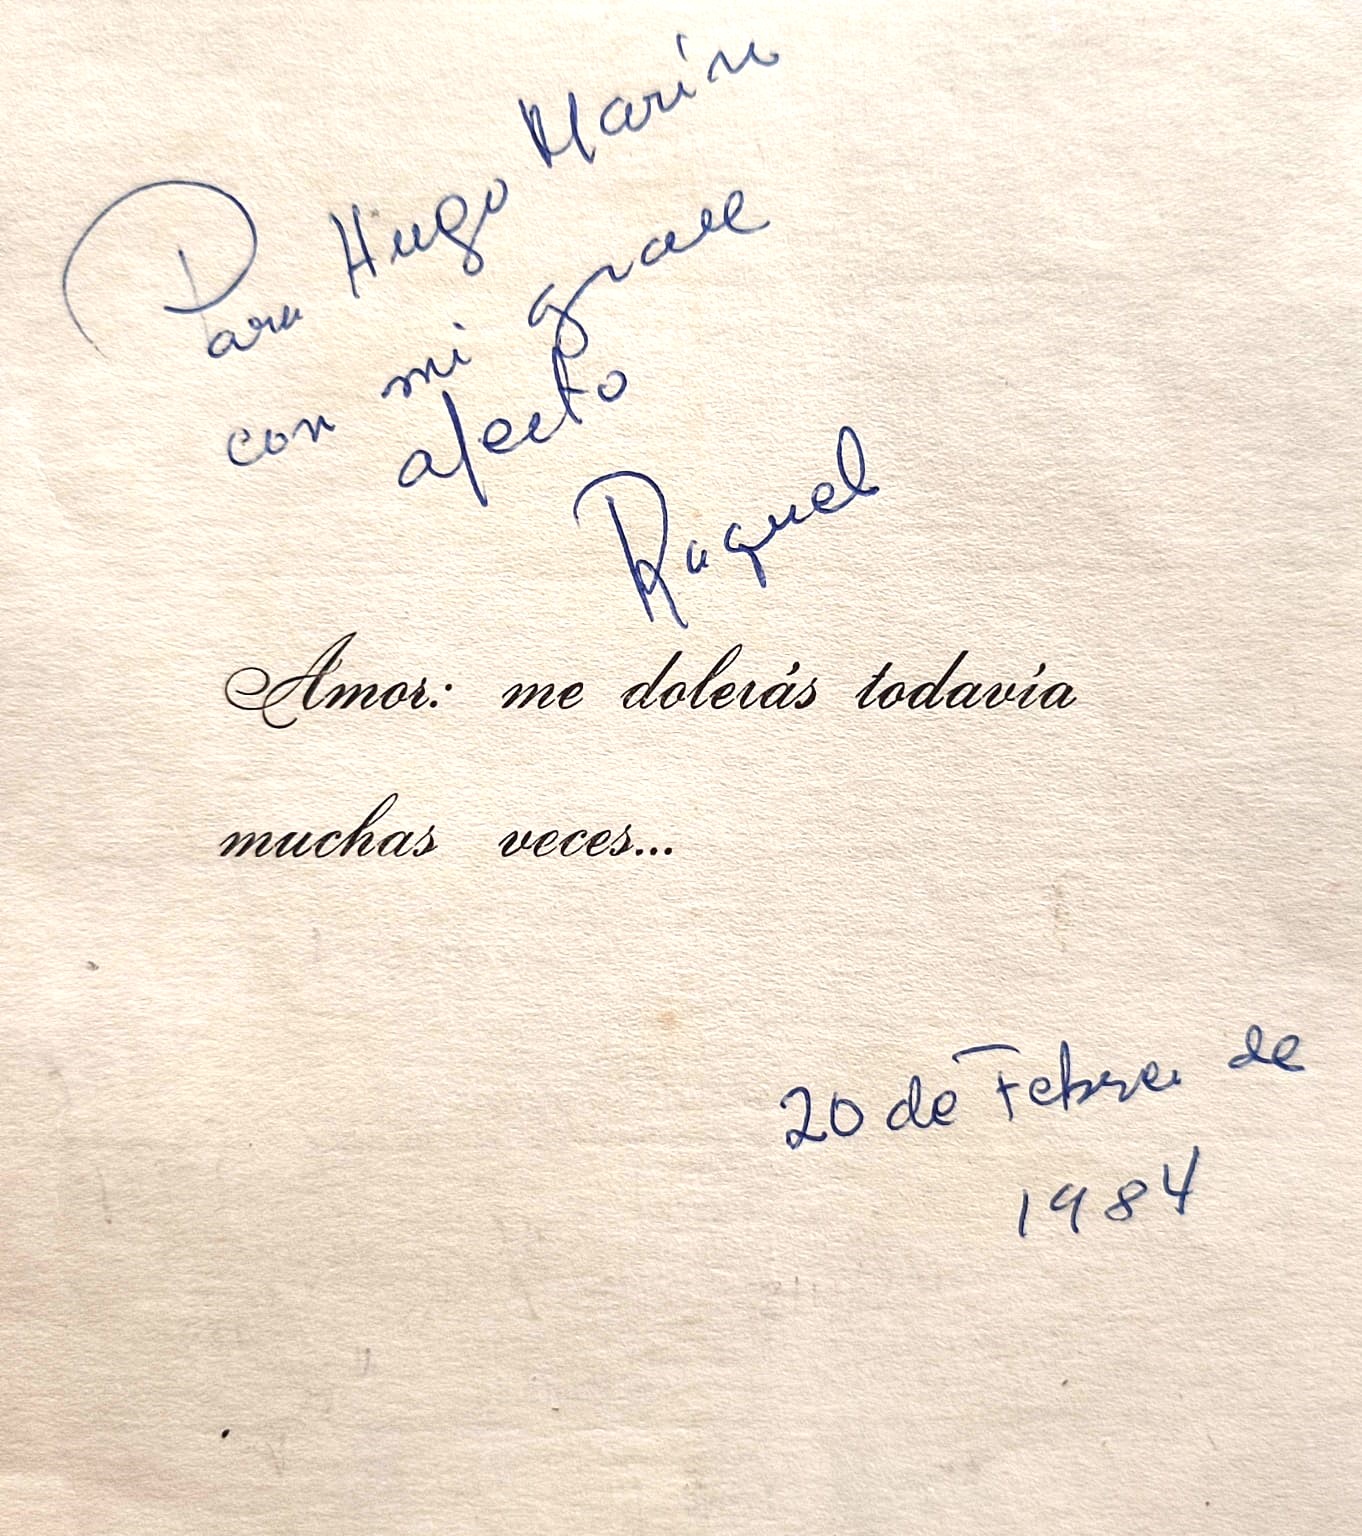 Para Hugo Marín
con mi grave
afecto
Raquel
Amor: me dolerás todavía
muchas veces...
20 de Febrero de
1984